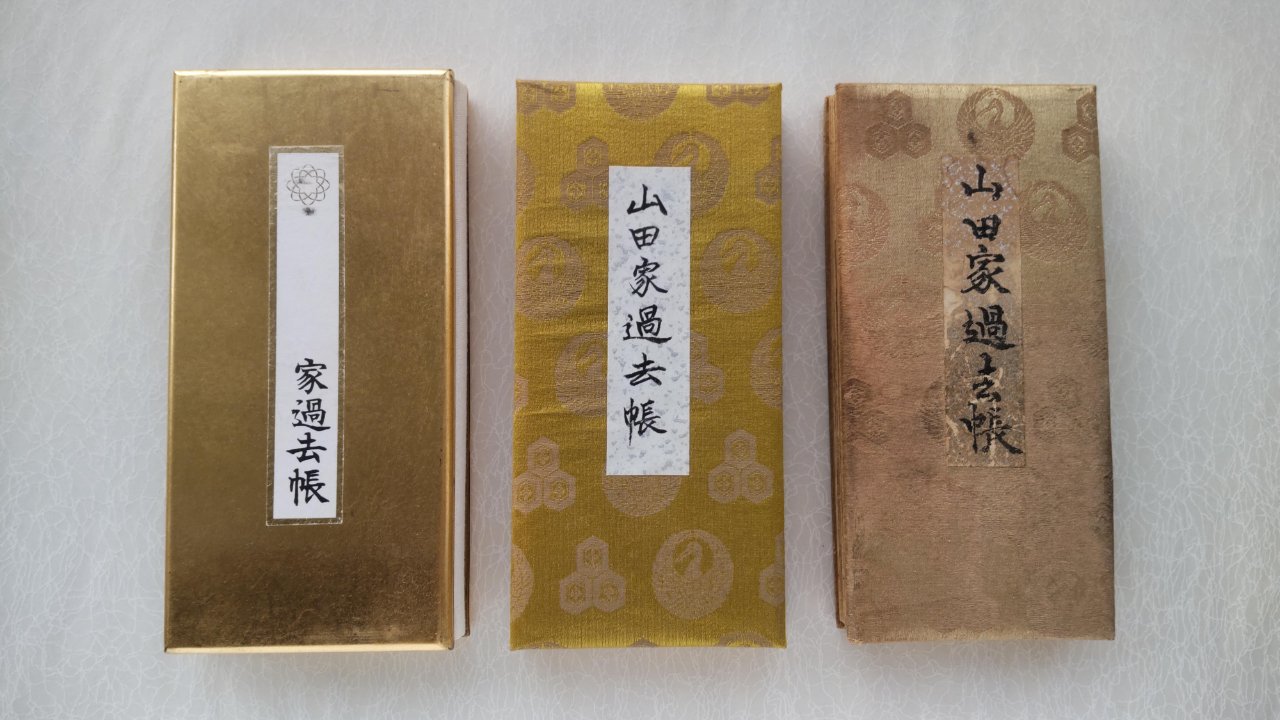 家過去帳
山田家過去帳
山田家過去帳